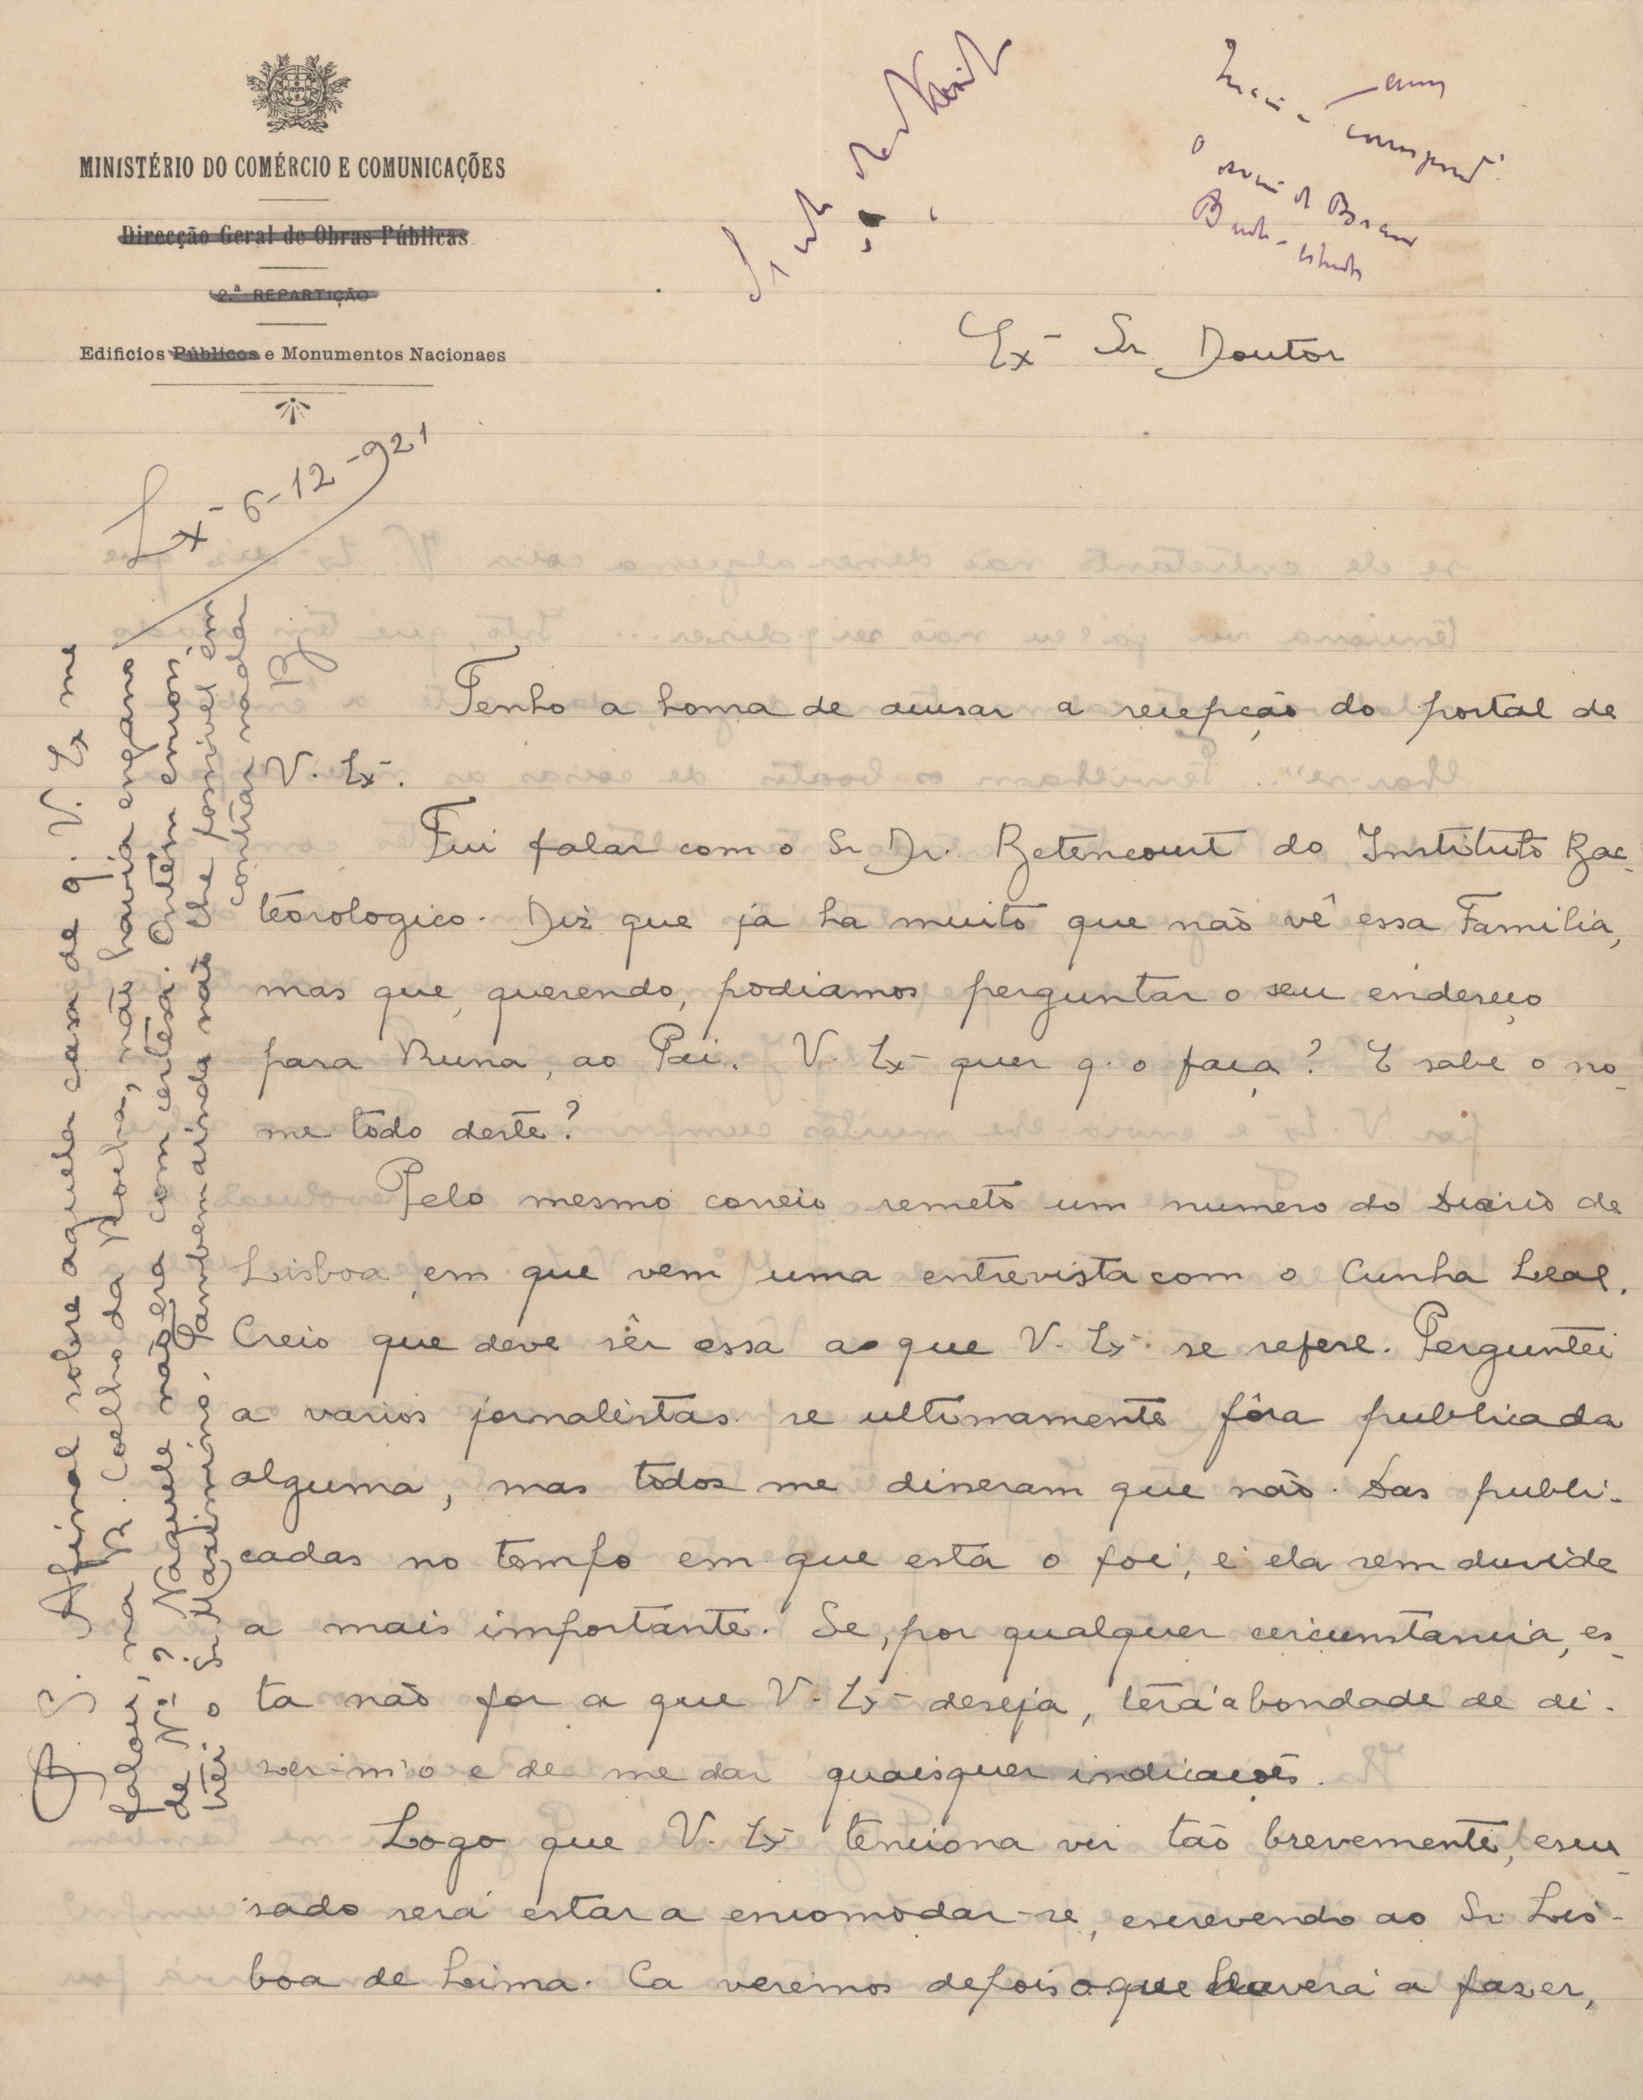 MINISTÉRIO DO COMÉRCIO E COMUNICAÇÕES
Direcção Geral de Obras Públicas
2.ª REPARTIÇÃO
Edificios Públicos e Monumentos Nacionaes
Lx-6-12-921
Ex- Sr Doutor
Tenho a honra de acusar a recepção do postal de
V. Ex-.
Fui falar com o Sr Dr. Betencourt do Instituto Bac-
teorologico. Diz que ja ha muito que não vê essa Familia,
mas que, querendo, podiamos perguntar o seu endereço
para Runa, ao Pai. V. Ex- quer q. o faça? E sabe o no-
me todo deste?
Pelo mesmo correio remeto um numero do Diario de
Lisboa em que vem uma entrevista com o Cunha Leal.
Creio que deve sêr essa a que V. Ex- se refere. Perguntei
a varios jornalistas se ultimamente fôra publicada
alguma, mas todos me disseram que não. Das publi-
cadas no tempo em que esta o foi, é ela sem duvida
a mais importante. Se, por qualquer circunstancia, es-
ta não for a que V. Ex- deseja, terá a bondade de di-
zer-m'o e de me dar quaisquer indicações.
Logo que V. Ex- tenciona vir tão brevemente, escu-
sado será estar a encomodar-se, escrevendo ao Sr. Lis-
boa de Lima. Ca veremos depois o que haverá a fazer,
P. S. Afinal sobre aquela casa de q. V. Ex me
falou, na R. Coelho da Rocha, não havia engano
de Nº? Naquele não era com certeza. Ontem encon-
trei o Sr Maximino. Tambem ainda não lhe foi possivel en-
contrar nada